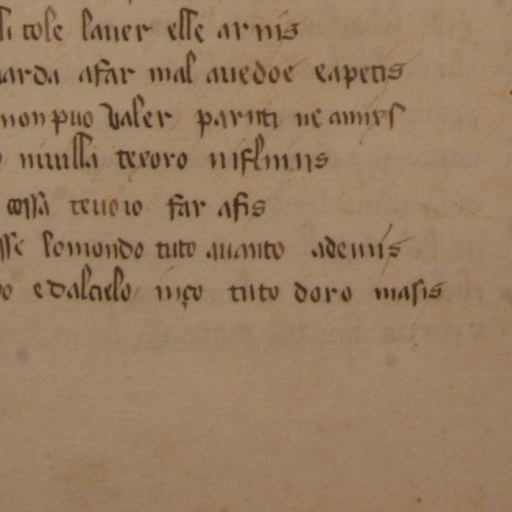 tole lauer elle arnis
arda afar mal auedoe eapetis
non puo valer parinti ne amiys
niuilla texoro
cossa teuoio far afis
sse lomondo tuto auanto ademis
edalcielo inço tuto doro masis